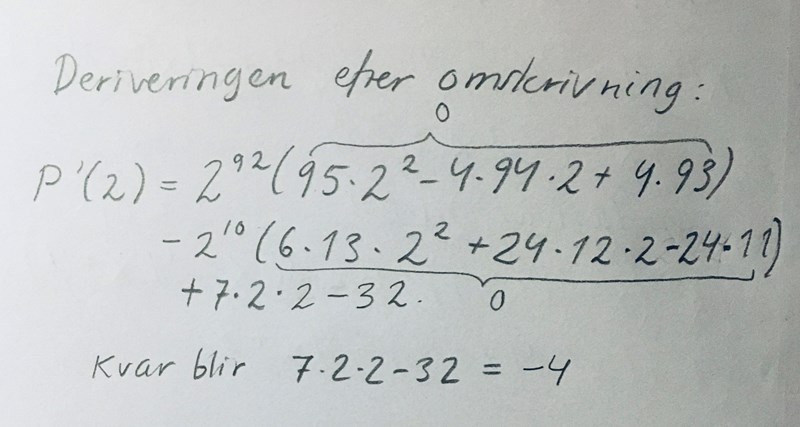 Deriveringen efter omskrivning:
0
P'(2) = 2⁹²(95·2²-4·94·2+4·93)
-2¹⁰(6·13·2²+24·12·2-24·11)
+7·2·2-32. 0
Kvar blir 7·2·2-32 = -4